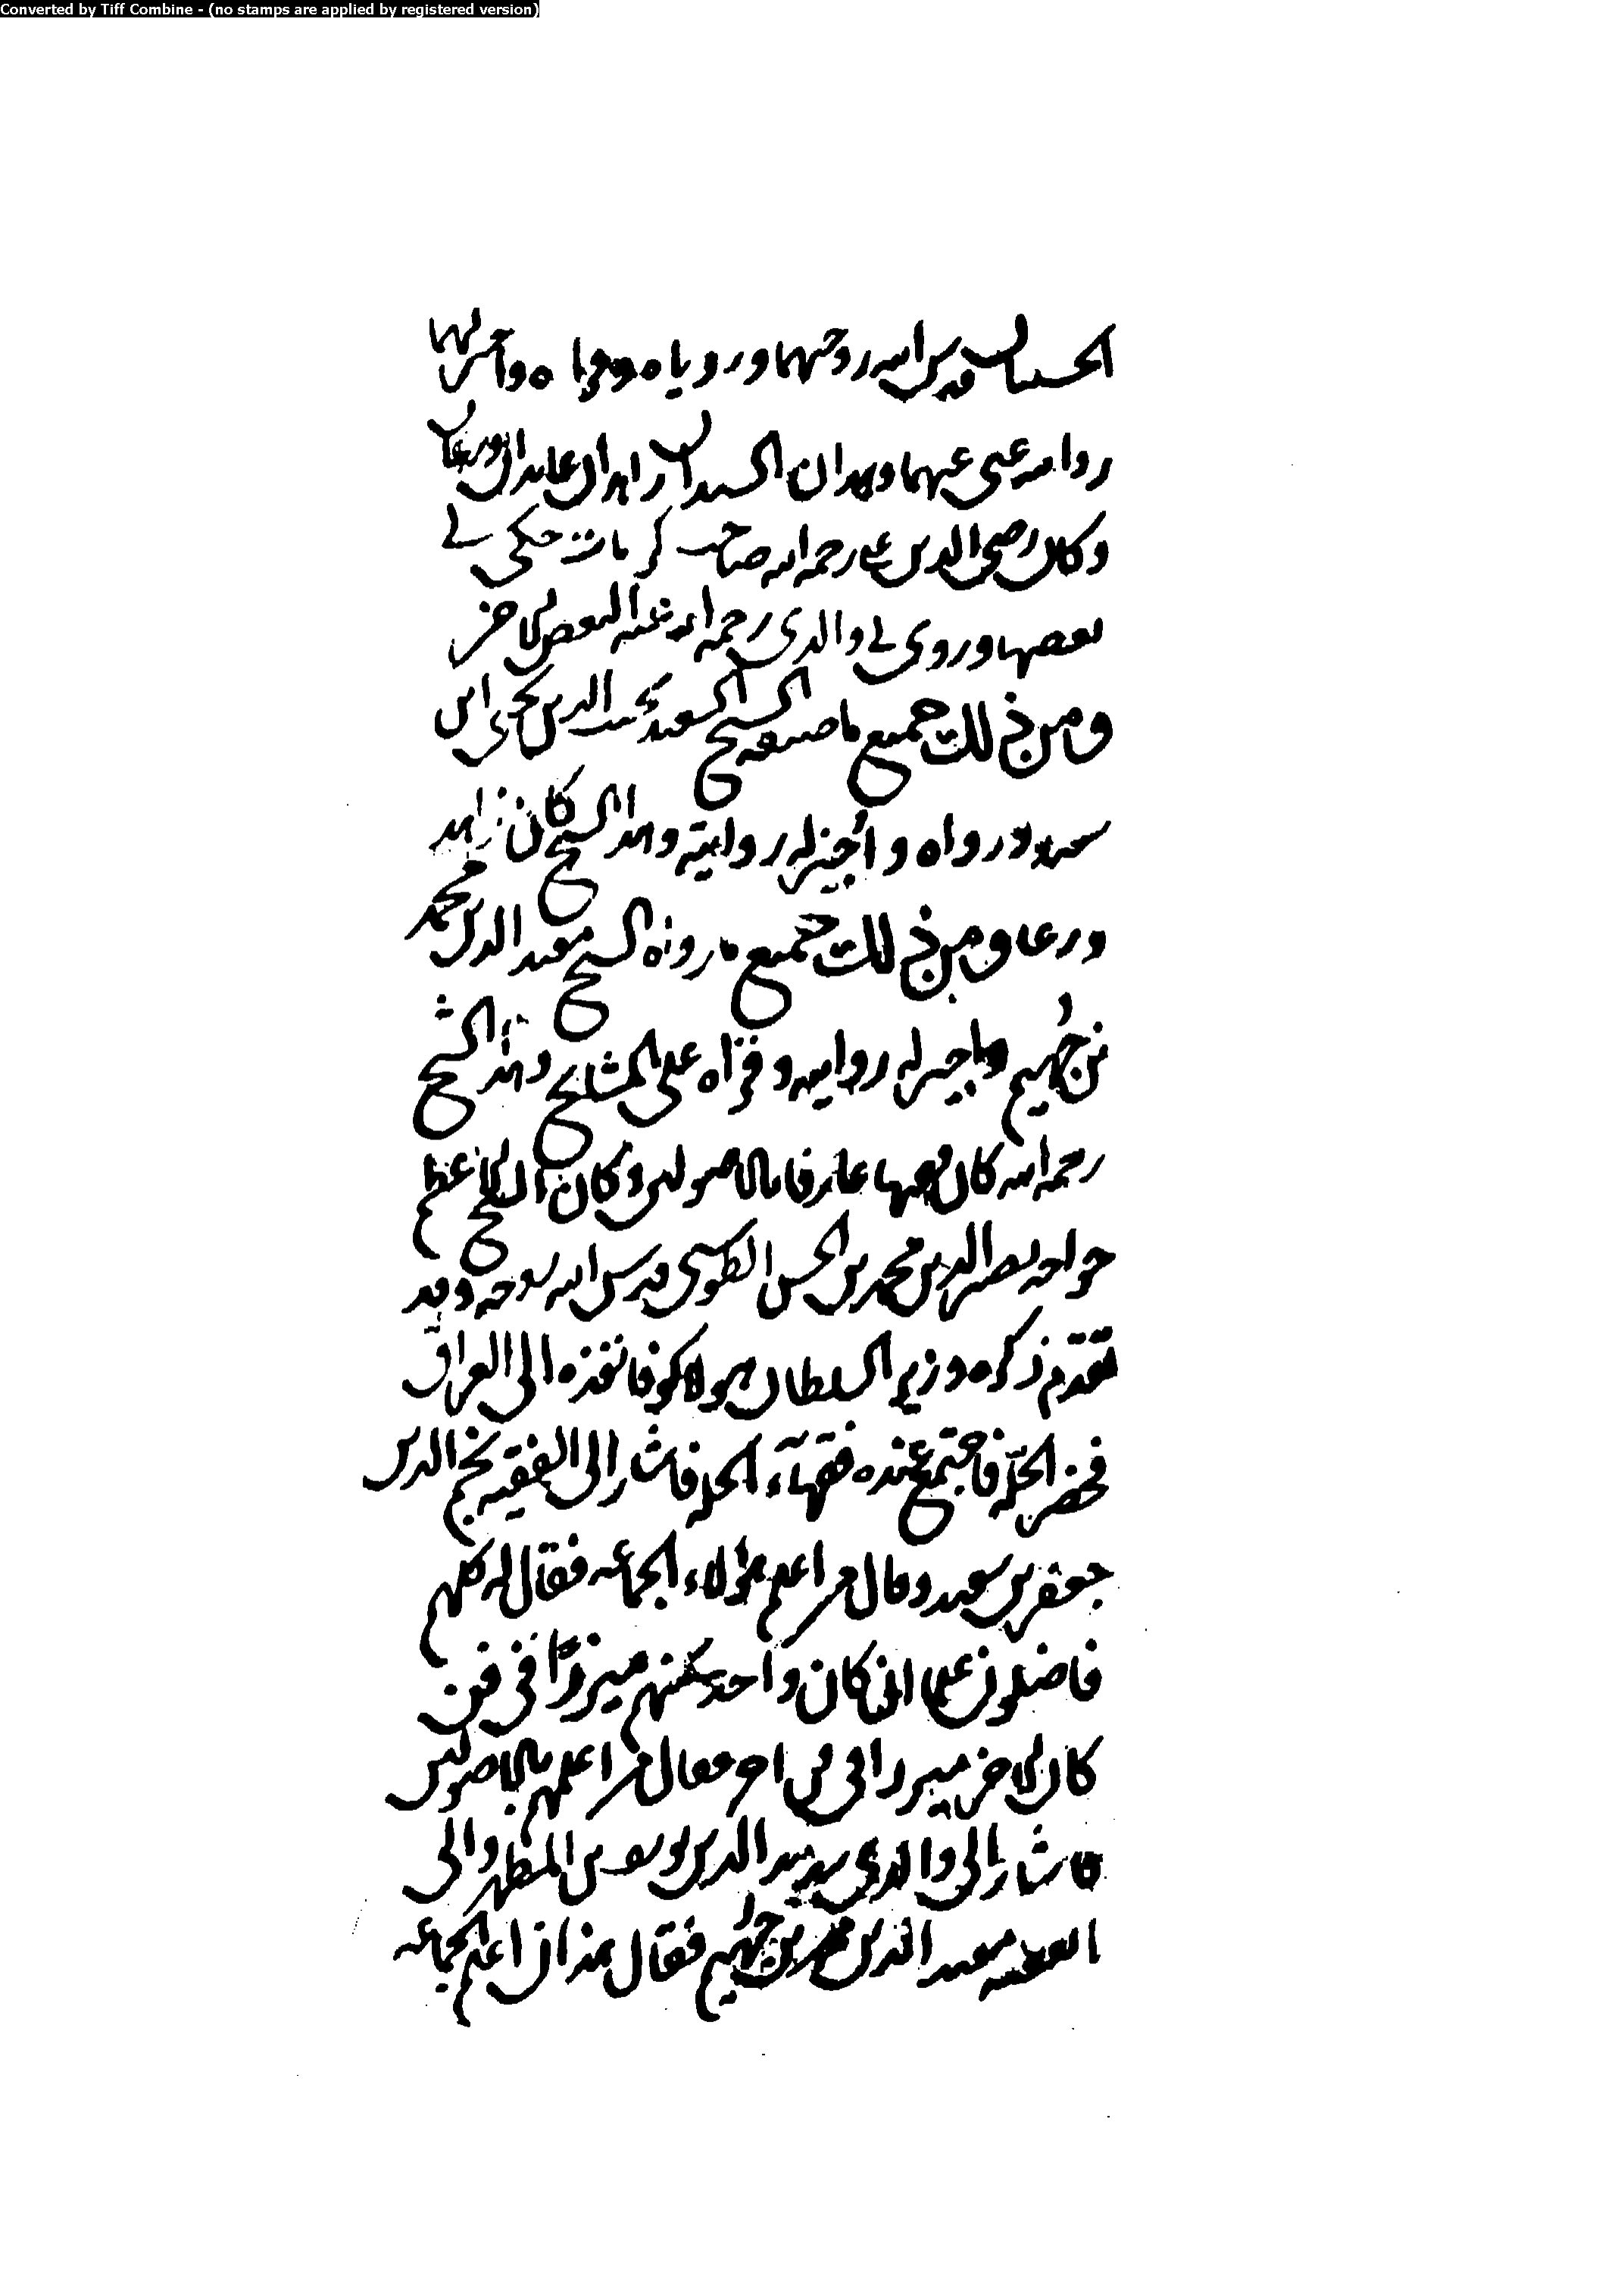 Converted by Tiff Combine - (no stamps are applied by registered version)
الحسنيان قدس الله روحهما ورويا وقرآه واجيز لهما
روايته عني عنهما وهذان السيدان زاهدان عابدان ورعان
وكان رضي الدين علي رحمه الله صاحب كرامات حكى لي
بعضها وروى لي والدي رحمه الله عنه البعض الآخر
ومن ذلك جميع ما صنفه الشيخ السعيد نجيب الدين يحيى ابن
سعيد ورواه واجيز له روايته وهذا الشيخ كان زاهدا
ورعا ومن ذلك جميع ما رواه الشيخ مفيد الدين محمد
بن جهيم وما اجيز له روايته وقرأه على المشايخ وهذا الشيخ
رحمه الله كان فقيها عارفا بالاصولين وكان الشيخ الاعظم
خواجه نصير الدين محمد بن الحسن الطوسي قدس الله روحه وقد
تقدم ذكره وزير السلطان هولاكو فانفذه الى العراق
فحضر الحلة فاجتمع عنده فقهاء الحلة فاشار الى الفقيه نجم الدين
جعفر بن سعيد وقال من اعلم هؤلاء الجماعة فقال له كلهم
فاضلون علماء ان كان واحد منهم مبرزا في فن
كان الآخر مبرزا في فن آخر فقال من اعلمهم بالاصولين
فاشار الى والدي سديد الدين يوسف بن المطهر والى
الفقيه مفيد الدين محمد بن جهيم فقال هذان اعلم الجماعة